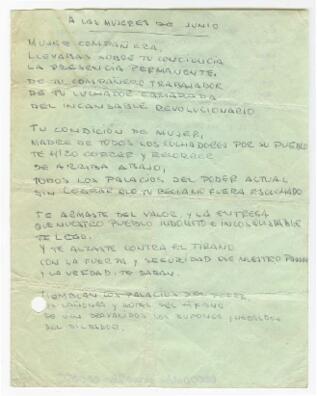 A LAS MUJERES DE JUNIO
MUJER COMPAÑERA,
LLEVABAS SOBRE TU CONCIENCIA
LA PRESENCIA PERMANENTE.
DE TU COMPAÑERO TRABAJADOR
DE TU LUCHADOR CAMARADA
DEL INCANSABLE REVOLUCIONARIO
TU CONDICIÓN DE MUJER,
MADRE DE TODOS LOS LUCHADORES POR SU PUEBLO
TE HIZO CORRER Y RECORRER
DE ARRIBA ABAJO,
TODOS LOS PALACIOS DEL PODER ACTUAL
SIN LOGRAR QUE TU RECLAMO FUERA ESCUCHADO
TE ARMASTE DEL VALOR, Y LA ENTREGA
QUE NUESTRO PUEBLO INDOMITO E INCANSABLE
TE LEGO.
Y TE ALZASTE CONTRA EL TIRANO
CON LA FUERZA Y SEGURIDAD QUE NUESTRO
Y LA VERDAD, TE DABAN.
TEMBLARON LOS PALACIOS DEL PODER,
CAÑONES Y BOTAS DEL TIRANO
SE VEN DERROTADOS LOS
DEL DICTADOR.